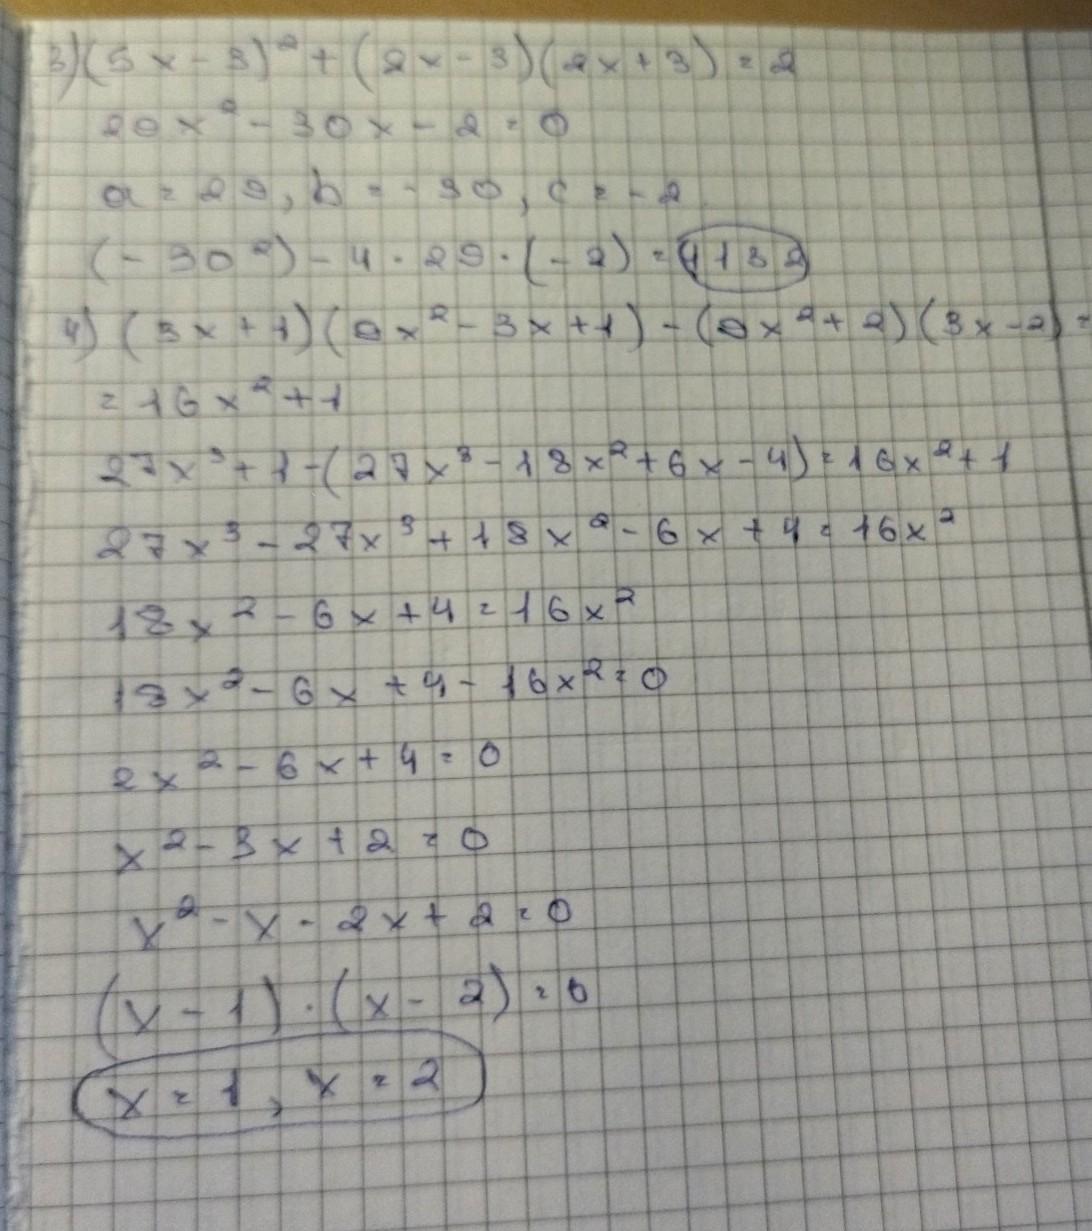 3) (5x - 3)² + (2x - 3)(2x + 3) = 2
29x² - 30x - 2 = 0
a = 29, b = -30, c = -2
(-30²) - 4 · 29 · (-2) = 1132
4) (3x + 1)(9x² - 3x + 1) - (9x² + 2)(3x - 2) =
= 16x² + 1
27x³ + 1 - (27x³ - 18x² + 6x - 4) = 16x² + 1
27x³ - 27x³ + 18x² - 6x + 4 = 16x²
18x² - 6x + 4 = 16x²
18x² - 6x + 4 - 16x² = 0
2x² - 6x + 4 = 0
x² - 3x + 2 = 0
x² - x - 2x + 2 = 0
(x - 1) · (x - 2) = 0
x = 1, x = 2